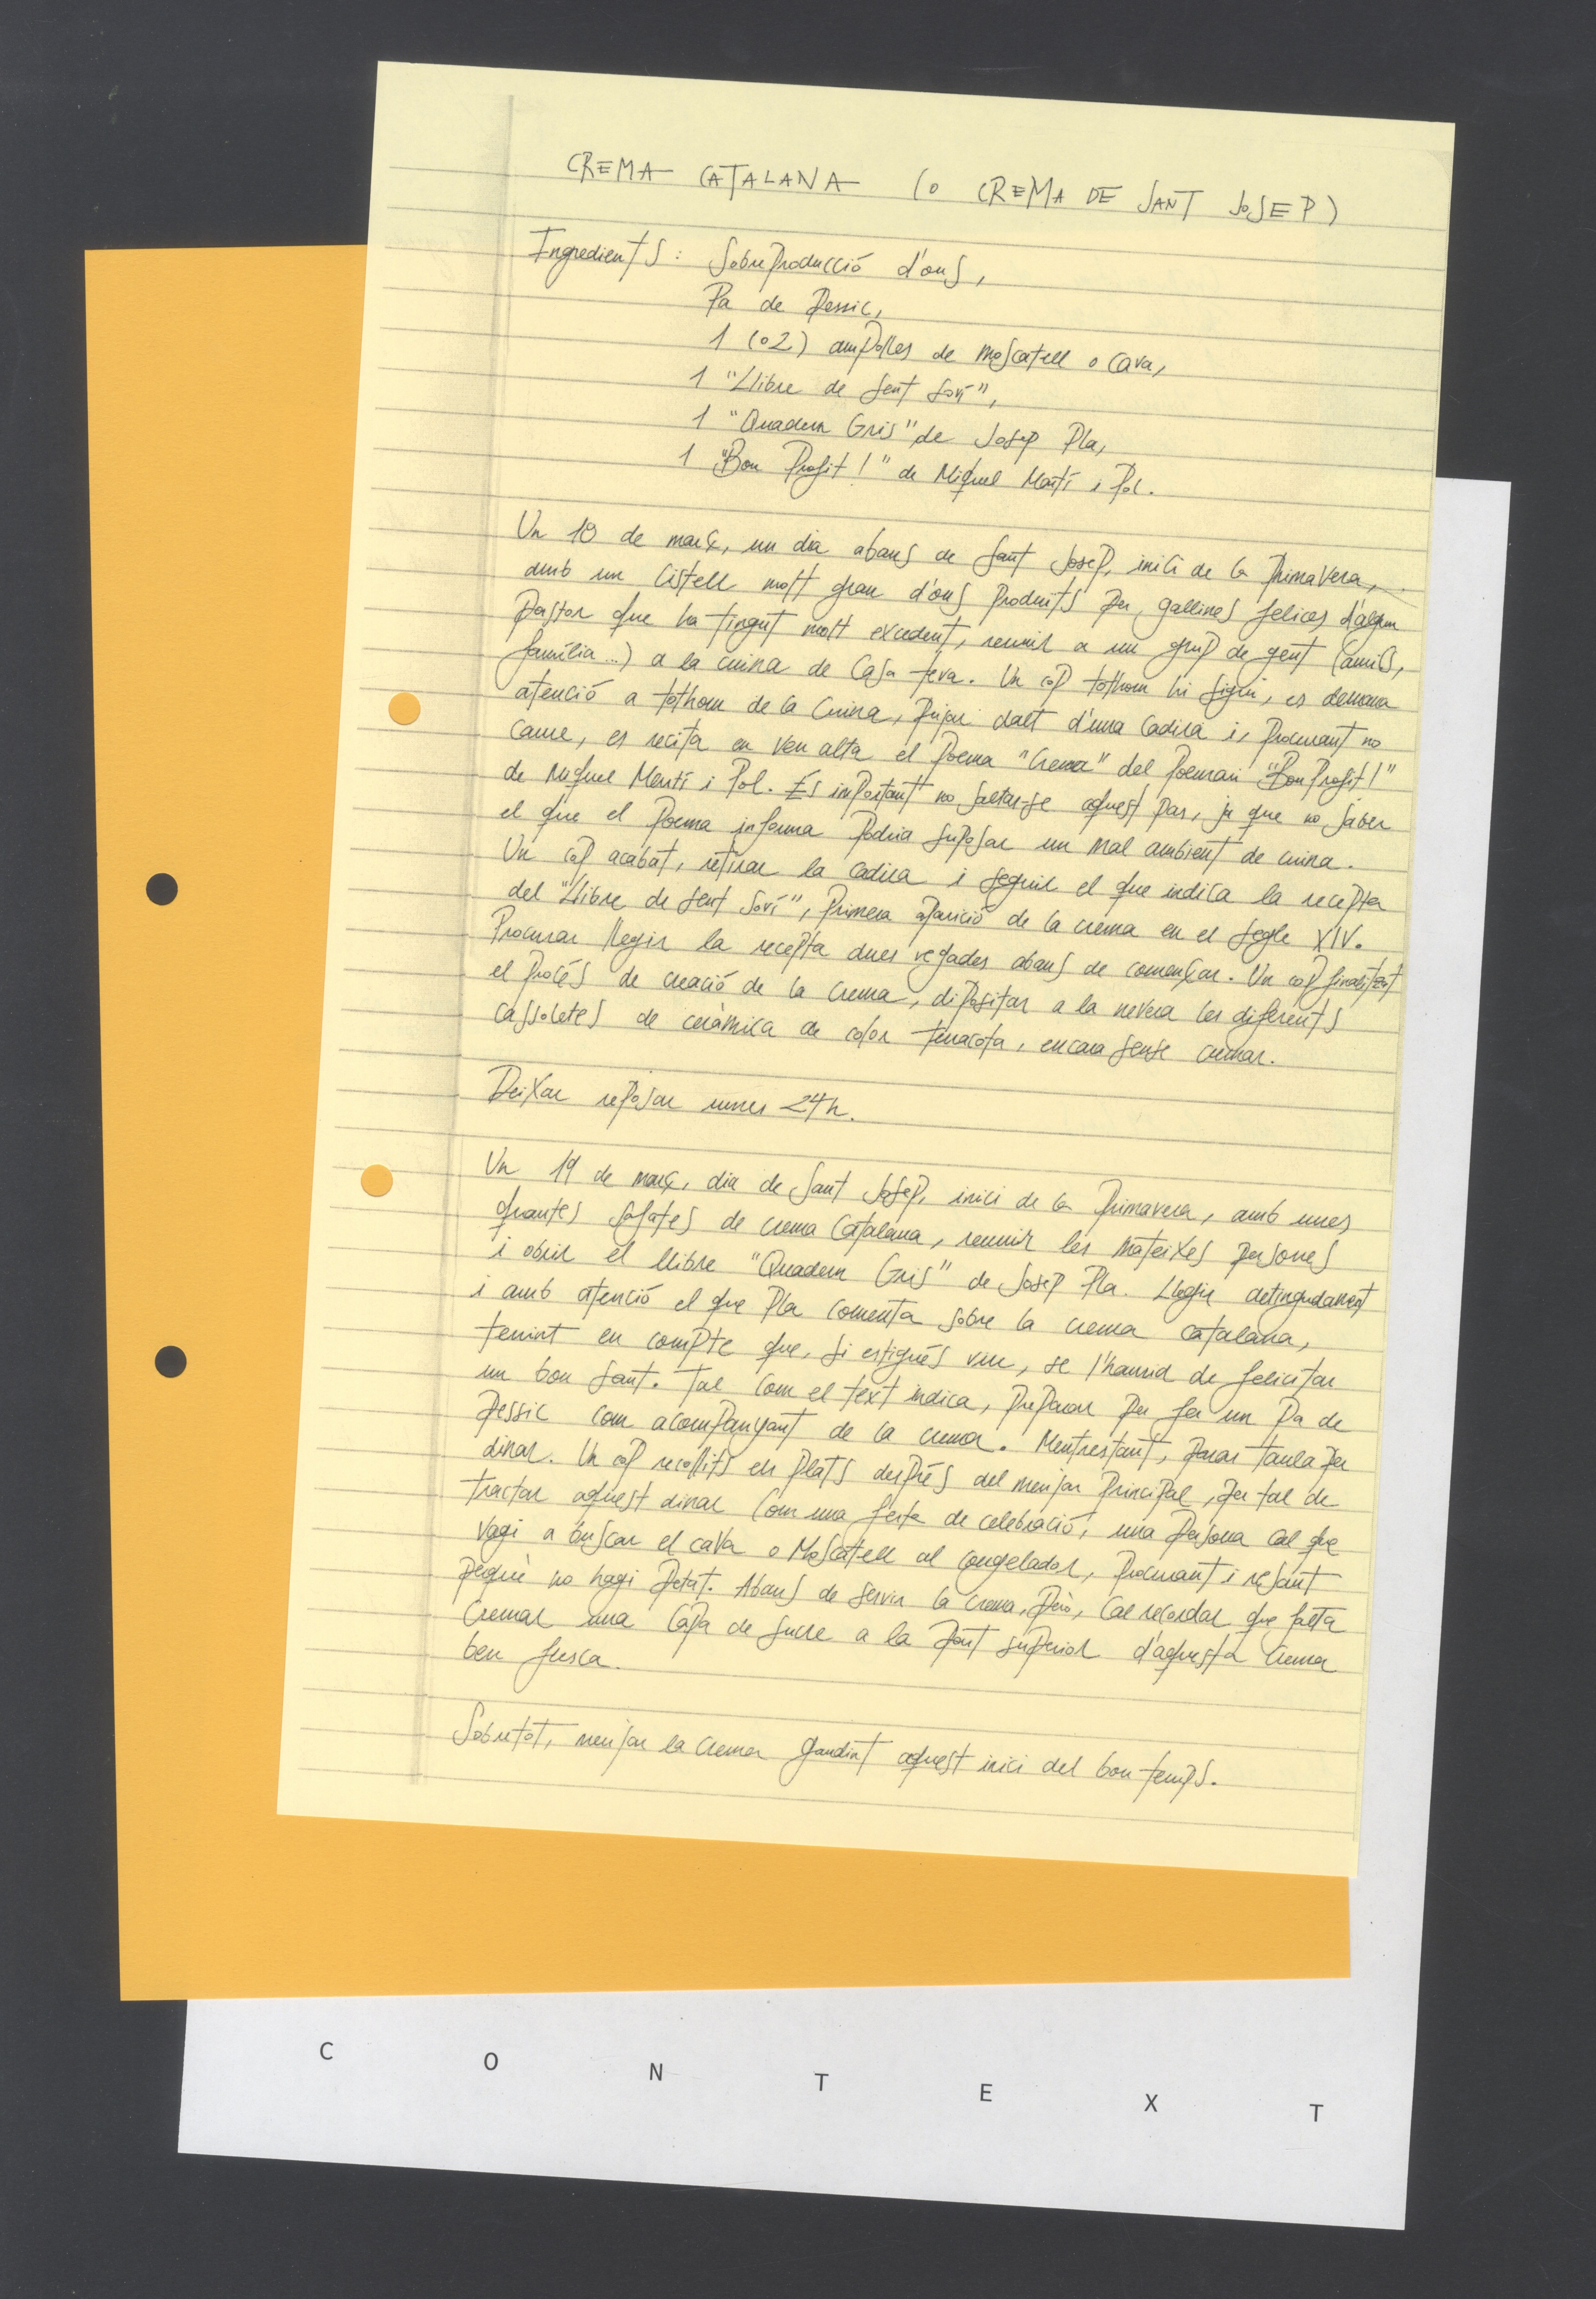 CREMA CATALANA (o CREMA DE SANT JOSEP)
Ingredients: Sobreproducció d'ous,
Pa de pessic,
1 (o 2) ampolles de moscatell o cava,
1 "Llibre de Sent Soví",
1 "Quadern Gris" de Josep Pla,
1 "Bon Profit!" de Miquel Martí i Pol.
Un 18 de març, un dia abans de Sant Josep, inici de la primavera,
amb un cistell molt gran d'ous produïts per gallines felices d'algun
pastor que ha tingut molt excedent, reunir a un grup de gent (amics,
família...) a la cuina de casa teva. Un cop tothom hi sigui, es demana
atenció a tothom de la cuina, pujar dalt d'una cadira i, procurant no
caure, es recita en veu alta el poema "Crema" del poemari "Bon Profit!"
de Miquel Martí i Pol. És important no saltar-se aquest pas, ja que no saber
el que el poema informa podria suposar un mal ambient de cuina.
Un cop acabat, retirar la cadira i seguir el que indica la recepta
del "Llibre de Sent Soví", primera aparició de la crema en el segle XIV.
Procurar llegir la recepta dues vegades abans de començar. Un cop finalitzat
el procés de creació de la crema, dipositar a la nevera les diferents
cassoletes de ceràmica de color terracota, encara sense cremar.
Deixar reposar unes 24h.
Un 19 de març, dia de Sant Josep, inici de la primavera, amb unes
quantes safates de crema catalana, reunir les mateixes persones
i obrir el llibre "Quadern Gris" de Josep Pla. Llegir detingudament
i amb atenció el que Pla comenta sobre la crema catalana,
tenint en compte que, si estigués viu, se l'hauria de felicitar
un bon sant. Tal com el text indica, preparar per fer un pa de
pessic com acompanyant de la crema. Mentrestant, parar taula per
dinar. Un cop recollits els plats després del menjar principal, per tal de
tractar aquest dinar com una festa de celebració, una persona cal que
vagi a buscar el cava o moscatell al congelador, procurant i resant
perquè no hagi petat. Abans de servir la crema, però, cal recordar que falta
cremar una capa de sucre a la part superior d'aquesta crema
ben fresca.
Sobretot, menjar la crema gaudint aquest inici del bon temps.
C O N T E X T